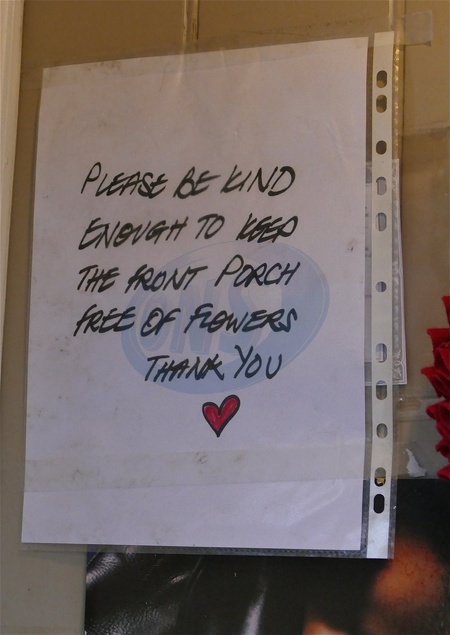 PLEASE BE KIND
ENOUGH TO KEEP
THE FRONT PORCH
FREE OF FLOWERS
THANK YOU